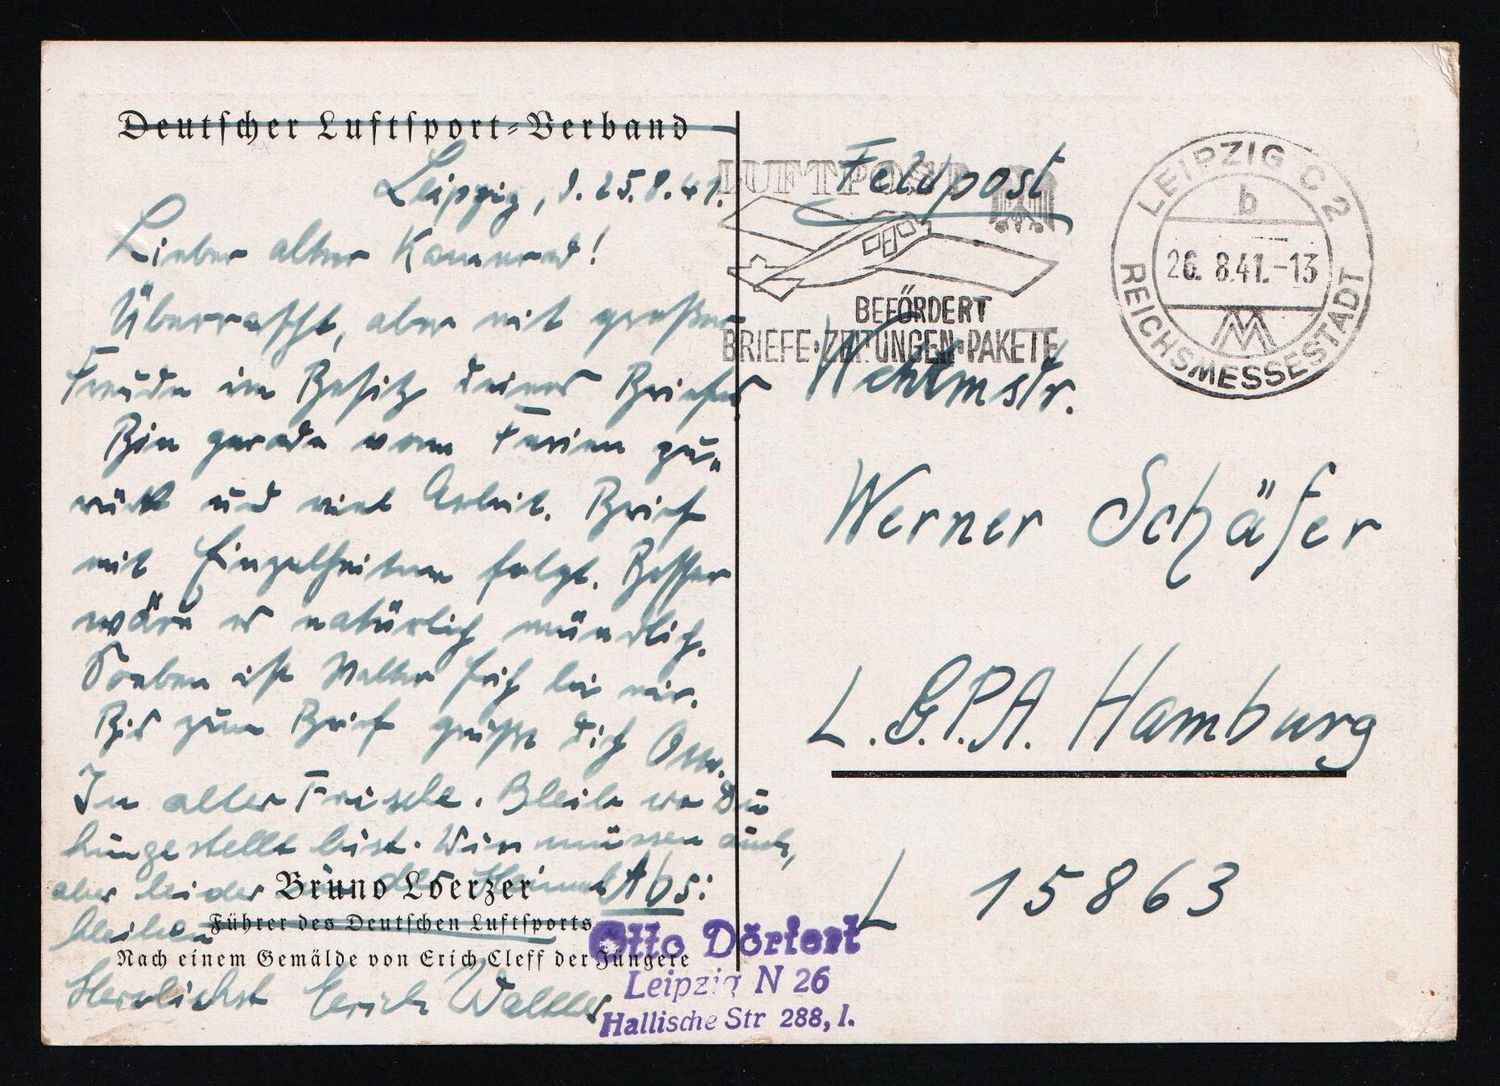 Deutscher Luftsport-Verband
Leipzig, d. 25.8.41.
Lieber alter Kamerad!
Überrascht, aber mit großer
Freude im Besitz deines Briefes
Bin gerade vom Ferien zu-
rück und viel Arbeit. Brief
mit Einzelheiten folgt. Besser
wäre es natürlich mündlich.
Soeben ist Walter bei mir.
Bis zum Brief grüßt dich Otto.
In alter Frische. Bleib wo Du
hingestellt bist. Wir müssen auch,
aber leider in der Heimat
bleiben
Herzlichst Erich Walter
Bruno Loerzer
Führer des Deutschen Luftsports
Nach einem Gemälde von Erich Cleff der Jüngere
Abs:
Otto Dörfert
Leipzig N 26
Hallische Str 288, I.
LUFTPOST
BEFÖRDERT
BRIEFE·ZEITUNGEN·PAKETE
LEIPZIG C 2
b
26. 8.41.-13
REICHSMESSESTADT
Feldpost
Wchtmstr.
Werner Schäfer
L.G.P.A. Hamburg
L 15863